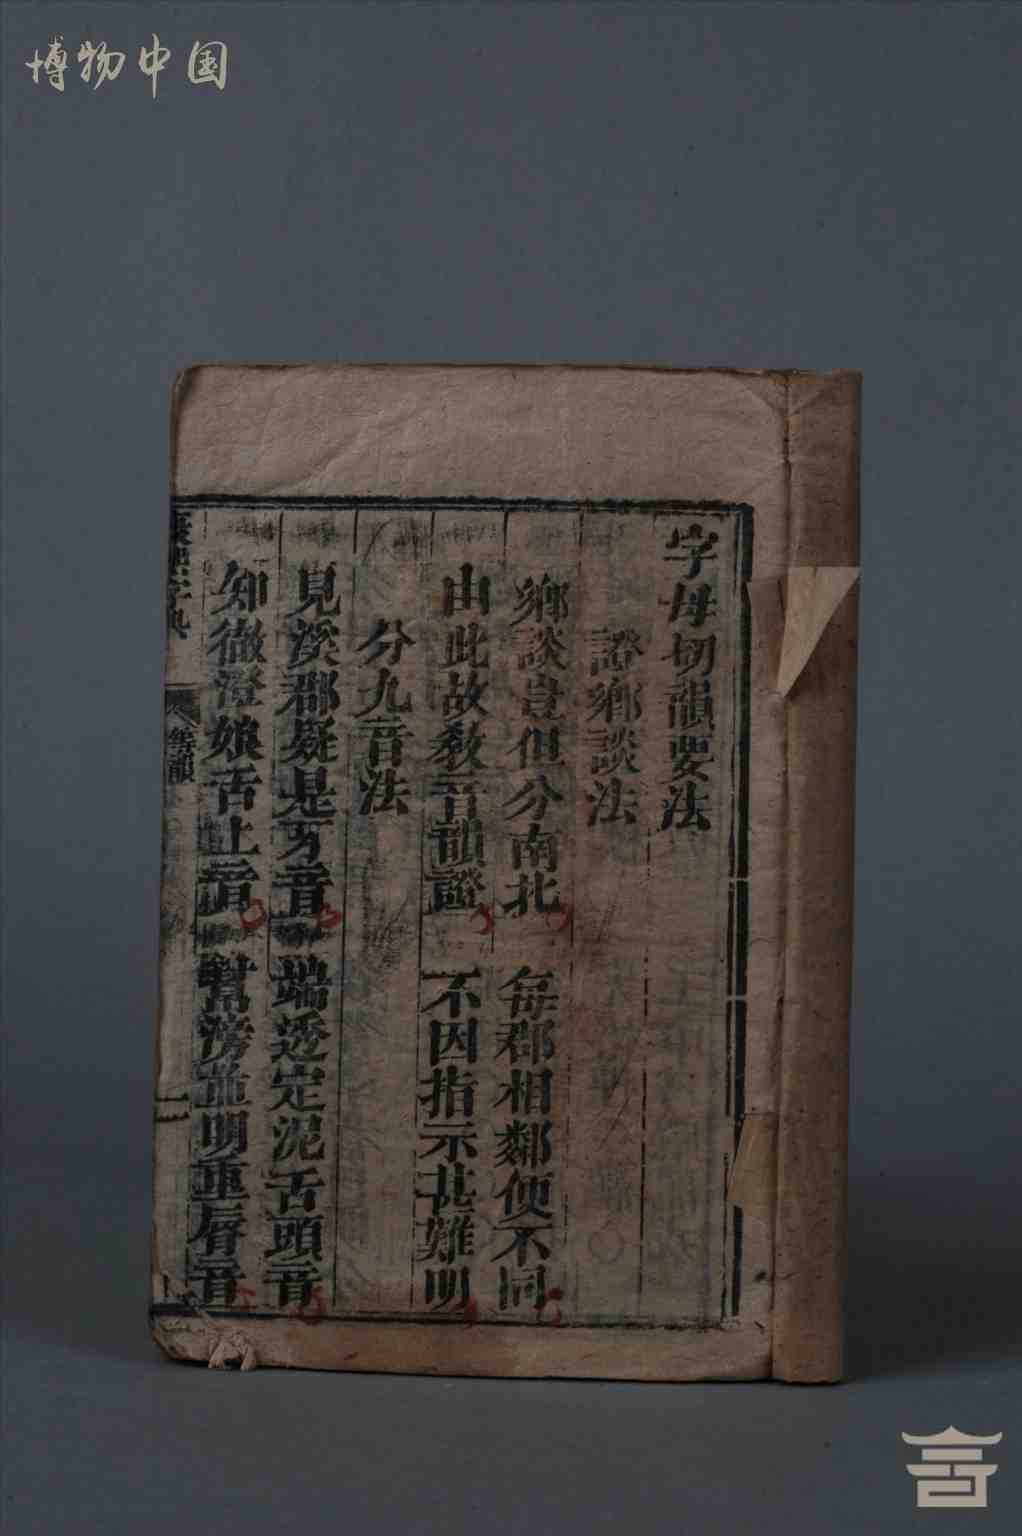 博物中国
字母切韻要法
證鄉談法
鄉談豈但分南北 每郡相鄰便不同
由此故敎音韻證 不因指示甚難明
分九音法
見溪郡疑是牙音 端透定泥舌頭音
知徹澄娘舌上音 幫滂並明重唇音
康熙字典 等韻 二